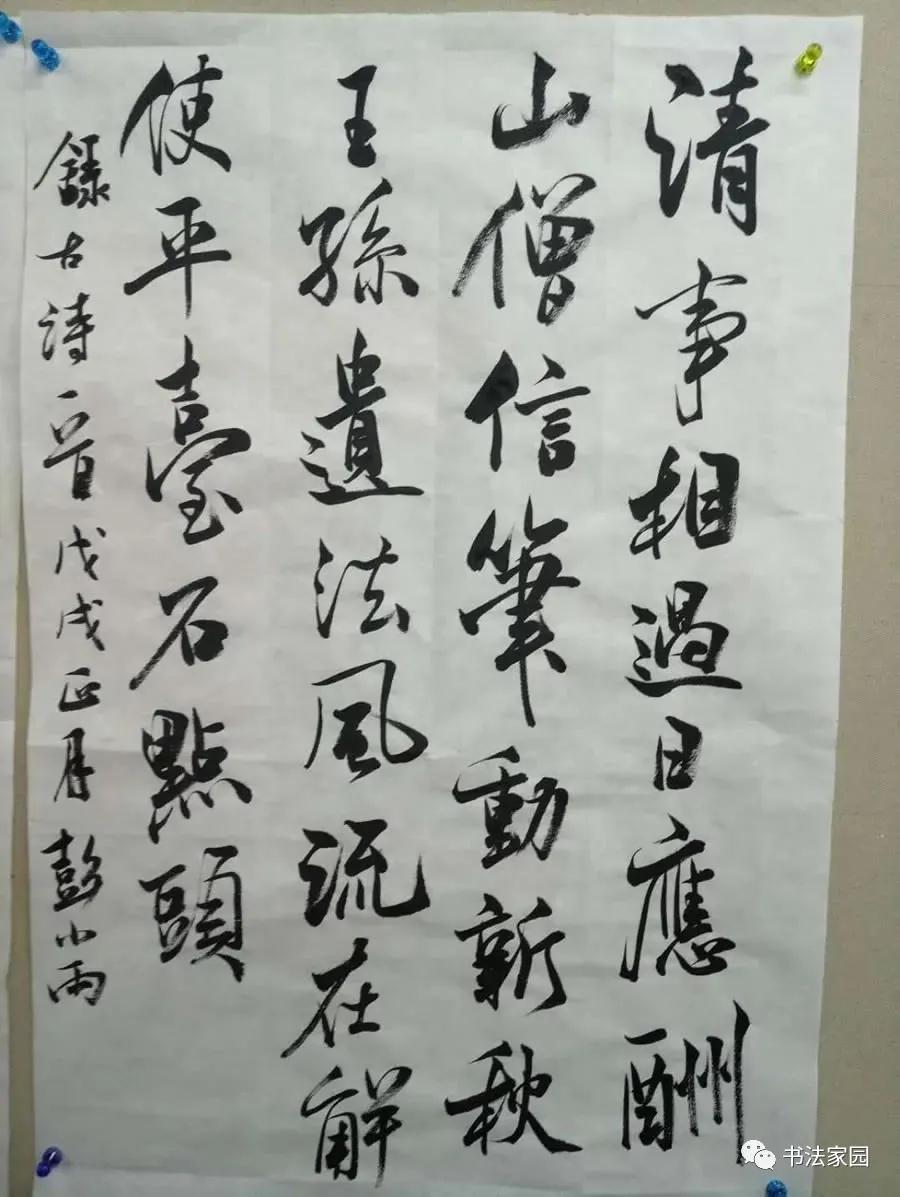 清事相過日應酬
山僧信筆動新秋
王孫遺法風流在解
使平臺石點頭
錄古詩一首戊戌正月彭小雨
书法家园